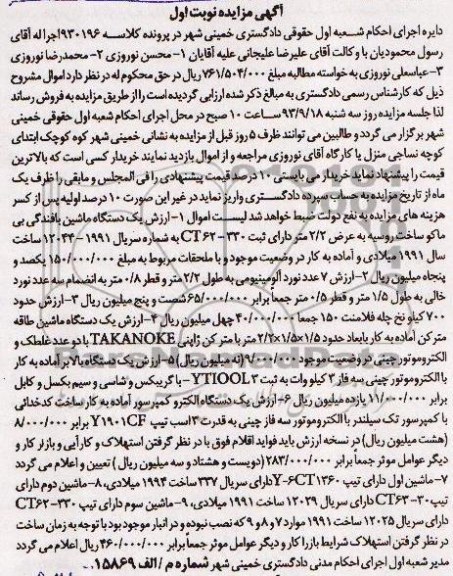 آگهی مزایده نوبت اول
دایره اجرای احکام شعبه اول حقوقی دادگستری خمینی شهر در پرونده کلاسه ۹۳۰۱۹۶ اجرا له آقای
رسول محمودیان با وکالت آقای علیرضا علیجانی علیه آقایان ۱- محسن نوروزی ۲- محمدرضا نوروزی
۳- عباسعلی نوروزی به خواسته مطالبه مبلغ ۷۶۱/۵۰۴/۰۰۰ ریال در حق محکوم له در نظر دارد اموال مشروح
ذیل که کارشناس رسمی دادگستری به مبالغ ذکر شده ارزابی گردیده است را از طریق مزایده به فروش رساند
لذا جلسه مزایده روز سه شنبه ۹۳/۹/۱۸ ساعت ۱۰ صبح در محل اجرای احکام شعبه اول حقوقی خمینی
شهر برگزار می گردد و طالبین می توانند ظرف ۵ روز قبل از مزایده به نشانی خمینی شهر کوه کوچک ابتدای
کوچه نساجی منزل یا کارگاه آقای نوروزی مراجعه و از اموال بازدید نمایند خریدار کسی است که بالاترین
قیمت را پیشنهاد نماید خریدار می بایستی ۱۰ درصد قیمت پیشنهادی را فی المجلس و مابقی را ظرف یک
ماه از تاریخ مزایده به حساب سپرده دادگستری واریز نماید در غیر این صورت ۱۰ درصد اولیه پس از کسر
هزینه های مزایده به نفع دولت ضبط خواهد شد لیست اموال ۱- ارزش یک دستگاه ماشین بافندگی بی
ماکو ساخت روسیه به عرض ۲/۲ متر دارای ثبت CT۶۲-۳۳۰ به شماره سریال ۱۹۹۱-۱۲۰۴۳ ساخت
سال ۱۹۹۱ میلادی و آماده به کار در وضعیت موجود و با ملحقات مربوط به مبلغ ۱۵۰/۰۰۰/۰۰۰ یکصد و
پنجاه میلیون ریال ۲- ارزش ۷ عدد نورد آلومینیومی به طول ۲/۲ متر و قطر ۰/۸ متر به انضمام سه عدد نورد
خالی به طول ۱/۵ متر و قطر ۰/۵ متر جمعاً برابر ۶۵/۰۰۰/۰۰۰ شصت و پنج میلیون ریال ۳- ارزش حدود
۷۰۰ کیلو نخ چله فلامنت ۱۵۰ جمعا ۴۰/۰۰۰/۰۰۰ چهل میلیون ریال ۴- ارزش یک دستگاه ماشین طاقه
متر کن آماده به کار با ابعاد حدود ۲/۲×۱/۵×۱/۵ متر با متر کن ژاپنی TAKANOKE با دو عدد غلطک و
الکتروموتور چینی در وضعیت موجود ۹/۰۰۰/۰۰۰ (نه میلیون ریال) ۵- ارزش یک دستگاه بالابر آماده به کار
با الکتروموتور چینی سه فاز ۳ کیلو وات به ثبت ۳ YTIOOL - با گریبکس و شاسی و سیم بکسل و کابل
برابر ۱۱/۰۰۰/۰۰۰ یازده میلیون ریال ۶- ارزش یک دستگاه الکترو کمپرسور آماده به کار ساخت کدخدائی
با کمپرسور تک سیلندر با الکتروموتور سه فاز چینی به قدرت ۳ اسب تیپ Y۱۹۰۱CF برابر ۸/۰۰۰/۰۰۰
(هشت میلیون ریال) در نسخه ارزش باید فواید اقلام فوق با در نظر گرفتن استهلاک و کارآیی و بازار کار و
دیگر عوامل موثر جمعاً برابر ۲۸۳/۰۰۰/۰۰۰ (دویست و هشتاد و سه میلیون ریال) تعیین و اعلام می گردد
۷- ماشین اول دارای تیپ Y-۶CT۱۳۶۰ دارای سریال ۳۳۷ ساخت ۱۹۹۴ میلادی، ۸- ماشین دوم دارای
تیپ CT۶۳-۳۰ دارای سریال ۱۲۰۳۹ ساخت ۱۹۹۱ میلادی، ۹- ماشین سوم دارای تیپ CT۶۲-۳۳۰
دارای سریال ۱۲۰۲۵ ساخت ۱۹۹۱ موارد ۷ و ۸ و ۹ که نصب نبوده و در انبار موجود بود با توجه به زمان ساخت
در نظر گرفتن استهلاک شرایط بازار کار و دیگر عوامل موثر جمعاً برابر ۴۶۰/۰۰۰/۰۰۰ ریال اعلام می گردد
مدیر شعبه اول اجرای احکام مدنی دادگستری خمینی شهر شماره م / الف ۱۵۸۶۹